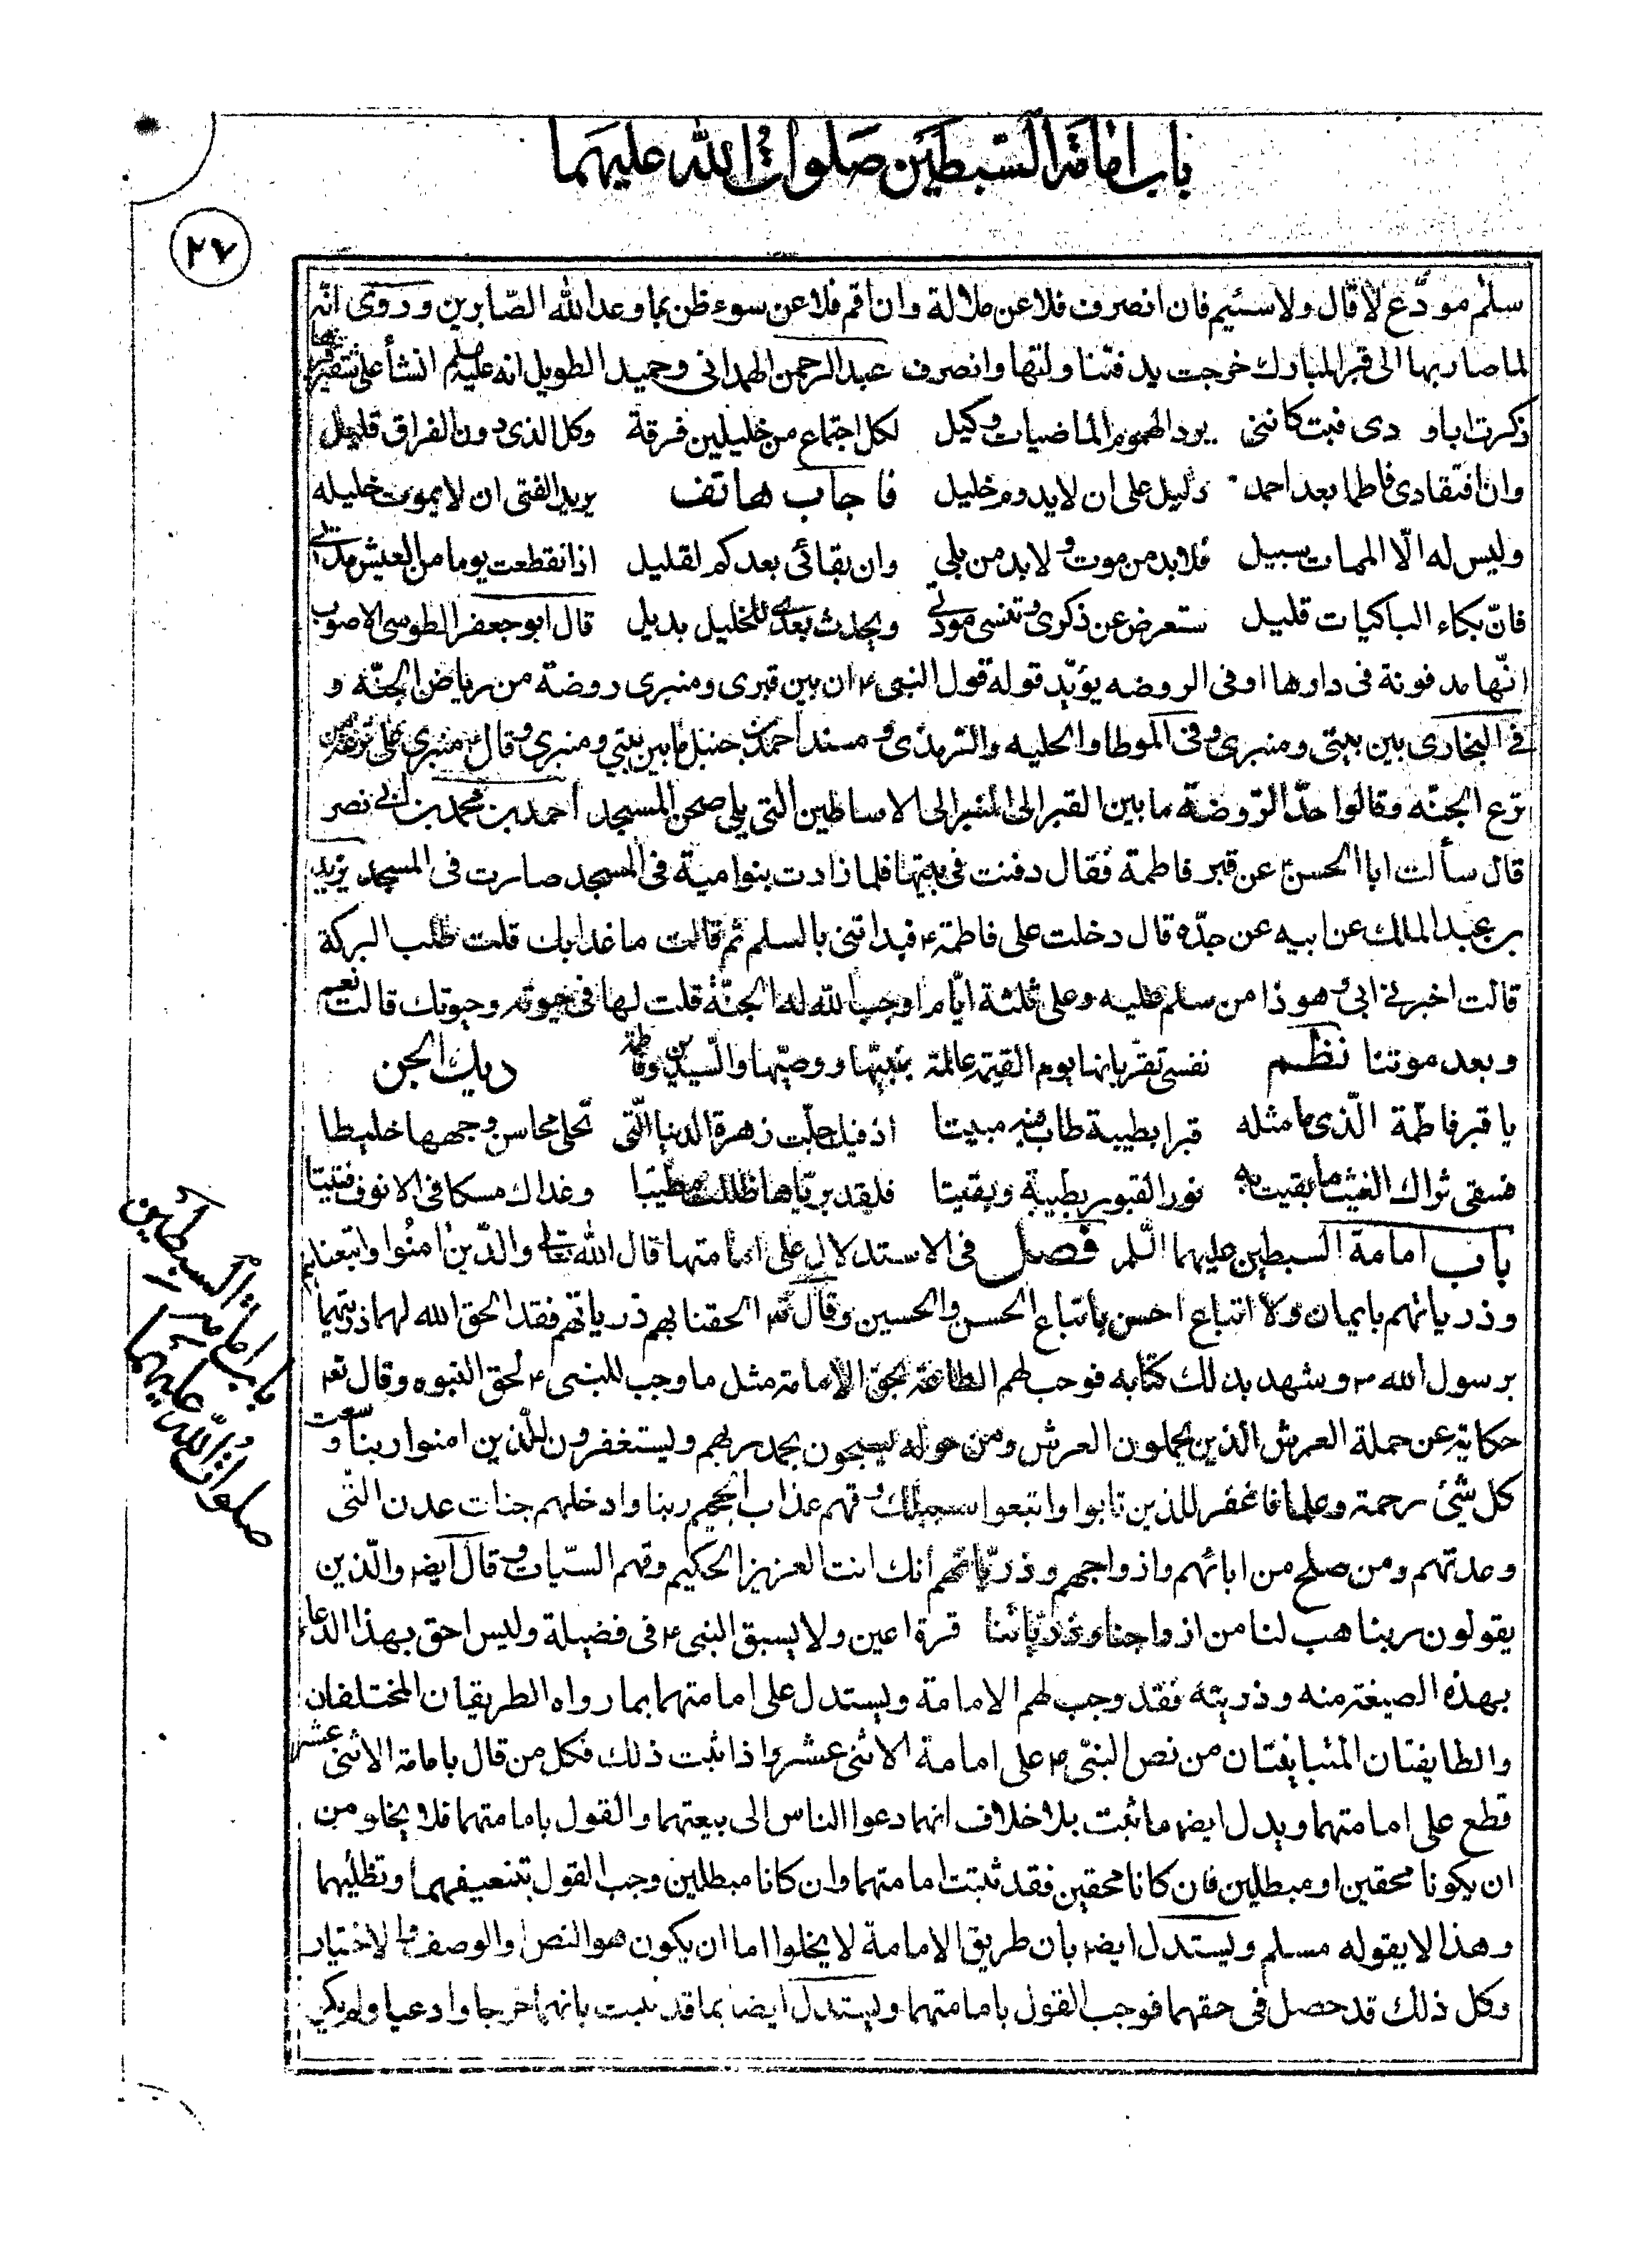 باب امامة السبطين صلوات الله عليهما
٢٧
سلم مودع لا قال ولا سئيم فان انصرف فلا عن ملالة وان اقم فلا عن سوء ظن بما وعد الله الصابرين وروى انه
لما صار بها الى قبر المبارك خرجت يد فتناولتها وانصرف عبد الرحمن الهمداني وحميد الطويل انه عليه انشأ على شفير قبرها
ذكرت ابا ودى فبت كاننى برد الهموم الماضيات وكيل لكل اجتماع من خليلين فرقة وكل الذى دون الفراق قليل
وان افتقادى فاطما بعد احمد دليل على ان لا يدوم خليل فاجاب هاتف يريد الفتى ان لا يموت خليله
وليس له الّا الممات سبيل فلا بد من موت ولا بد من بلى وان بقائى بعدكم لقليل اذا انقطعت يوما من العيش مدتي
فانّ بكاء الباكيات قليل ستعرض عن ذكرى وتنسى مودتي ويحدث بعدي للخليل بديل قال ابو جعفر الطوسى الاصوب
انّها مدفونة فى دارها او فى الروضه يؤيّد قوله قول النبى ٤ ان بين قبرى ومنبرى روضة من رياض الجنّه و
فى البخارى بين بيتى ومنبرى وفى الموطا والحليه والترمذى ومسند احمد بن حنبل ما بين بيتي ومنبرى وقال ٤ منبرى على ترعة من
ترع الجنّه وقالوا حدّ الرّوضة ما بين القبر الى المنبر الى الاساطين التى يلى صحن المسجد احمد بن محمد بن ابي نصر
قال سألت ابا الحسن عن قبر فاطمة فقال دفنت فى بيتها فلما زادت بنو امية فى المسجد صارت فى المسجد يزيد
بن عبد الملك عن ابيه عن جدّه قال دخلت على فاطمة ٤ فبدأتنى بالسلم ثم قالت ما غدا بك قلت طلب البركة
قالت اخبرني ابى وهوذا من سلم عليه وعلى ثلثة ايّام اوجب الله له الجنّة قلت لها فى حيوته وحيوتك قالت نعم
وبعد موتنا نظم نفسى تقرّ بانها يوم القيمة عالمة بنبيّها ووصيّها والسّيدين وفاطمة ديك الجن
يا قبر فاطمة الّذى ما مثله قبر ابطيبة طاب فيه مبيتا اذ فيك حلّت زهرة الدنيا الّتى تحلى محاسن وجهها خليطا
فسقى ثراك الغيث ما بقيت به نور القبور بطيبة وبقيتا فلقد بريّاها ظللت مطيّبا وغداك مسكا فى الانوف فتيتا
باب امامة السبطين عليهما السلم فصل فى الاستدلال على امامتها قال الله تعالى والذين امنوا واتبعتهم
وذرياتهم بايمان ولا اتباع احسن باتباع الحسن والحسين وقال تعه الحقنا بهم ذرياتهم فقد الحق الله لهما ذريتهما
برسول الله ٣ وشهد بذلك كتابه فوجب لهم الطاعة لحق الامامة مثل ما وجب للنبى ٤ لحق النبوه وقال تعه
حكاية عن حملة العرش الذين يحملون العرش ومن حوله يسبحون بحمد ربهم ويستغفرون للذين امنوا ربنا وسعت
كل شئ رحمة وعلما فاغفر للذين تابوا واتبعوا سبيلك وقهم عذاب الجحيم ربنا وادخلهم جنات عدن التى
وعدتهم ومن صلح من ابائهم وازواجهم وذرياتهم انك انت العزيز الحكيم وقهم السيات وقال ايضا والّذين
يقولون ربنا هب لنا من ازواجنا وذرياتنا قرة اعين ولا يسبق النبى ٤ فى فضيلة وليس احق بهذا الدعا
بهذه الصيغة منه وذريته فقد وجب لهم الامامة ويستدل على امامتهما بما رواه الطريقان المختلفان
والطايفتان المتباينتان من نص النبى ٤ على امامة الاثنى عشر واذا ثبت ذلك فكل من قال بامامة الاثنى عشر
قطع على امامتهما ويدل ايضا ما ثبت بلا خلاف انهما دعوا الناس الى بيعتهما والقول بامامتهما فلا يخلو من
ان يكونا محقين او مبطلين فان كانا محقين فقد ثبتت امامتهما وان كانا مبطلين وجب القول بتضعيفهما وتظليمهما
وهذا لا يقوله مسلم ويستدل ايضا بان طريق الامامة لا يخلوا اما ان يكون هو النص او الوصف او الاختيار
وكل ذلك قد حصل فى حقهما فوجب القول بامامتهما ويستدل ايضا بما قد ثبت بانهما خرجا وادعيا ولم يكن
باب امامة السبطين
صلوات الله عليهما